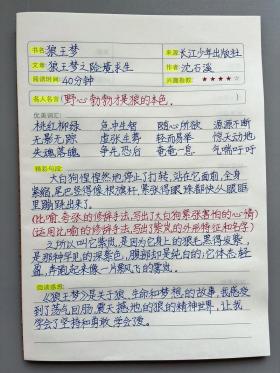 书名:狼王梦 来源:长江少年出版社
文章:狼王梦之险境求生 作者:沈石溪
阅读时间:40分钟 兴趣指数:★★★★☆
名人名言:野心勃勃才是狼的本色.
优美词汇:
桃红柳绿 急中生智 随心所欲 源源不断
无影无踪 虚张生势 轻而易举 惊天动地
失魂落魄 争先恐后 奄奄一息 气喘吁吁
精彩句段:
大白狗惶惶然地停上打转,站在它面前,全身
紧缩,尾巴竖得像根旗杆,紧张得眼珠都快从眼眶
里蹦跳出来了。
(比喻,夸张的修辞手法,写出了大白狗紧张害怕的心情)
(运用比喻的修辞手法,写出了紫岚的外形特征和名字)
之所以叫它紫岚,是因为它身上的狼毛黑得发紫,
是那种罕见的深紫色,腹部却是纯白的;它体态轻
盈,奔跑起来像一片飘飞的雾岚。
阅读感想:
《狼王梦》是关于狼,生命和梦想,的故事,我感受
到了荡气回肠,震天撼地,的狼的精神世界,让我
学会了坚持和勇敢,学会爱。